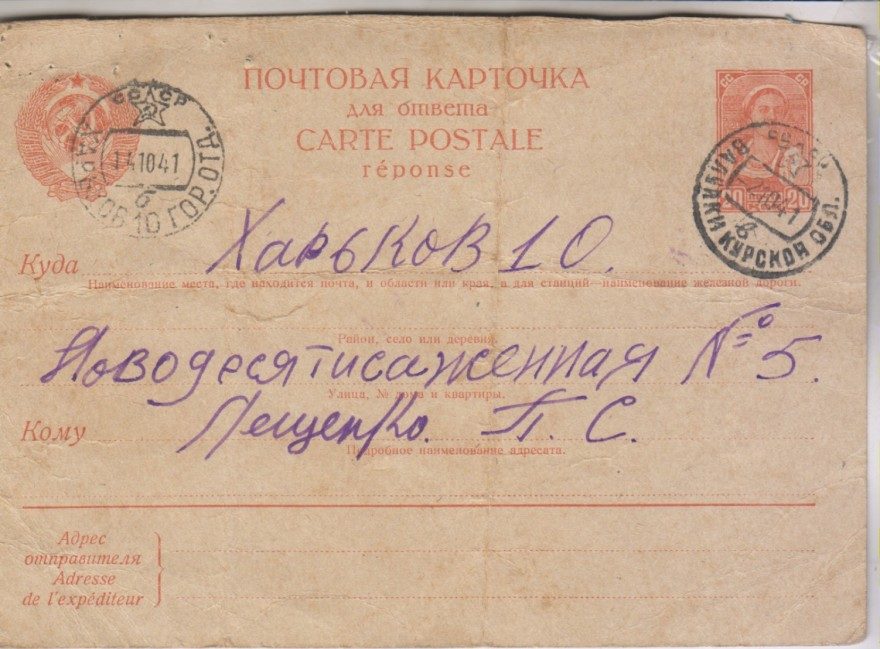 ПОЧТОВАЯ КАРТОЧКА
для ответа
CARTE POSTALE
réponse
СССР
14 10 41
б
ХАРЬКОВ 10 ГОР. ОТД.
СССР
20 20
ВАЛУЙКИ КУРСКОЙ ОБЛ.
в
Куда Харьков 10.
Наименование места, где находится почта, и области или края, а для станций—наименование железной дороги.
Район, село или деревня.
Новодесятисаженная № 5.
Улица, № дома и квартиры.
Кому Лещенко. П. С.
Подробное наименование адресата.
Адрес
отправителя
Adresse
de l'expéditeur